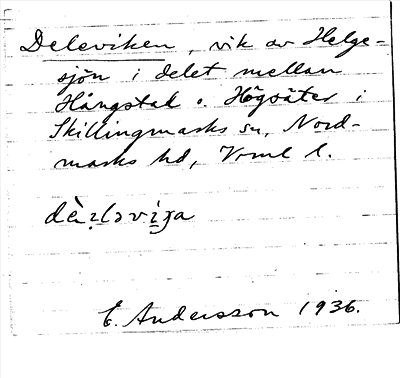 Deleviken, vik av Helge-
sjön i delet mellan
Hångstad o. Högsäter i
Skillingmarks sn, Nord-
marks hd, Vrml l.
E. Andersson 1936.